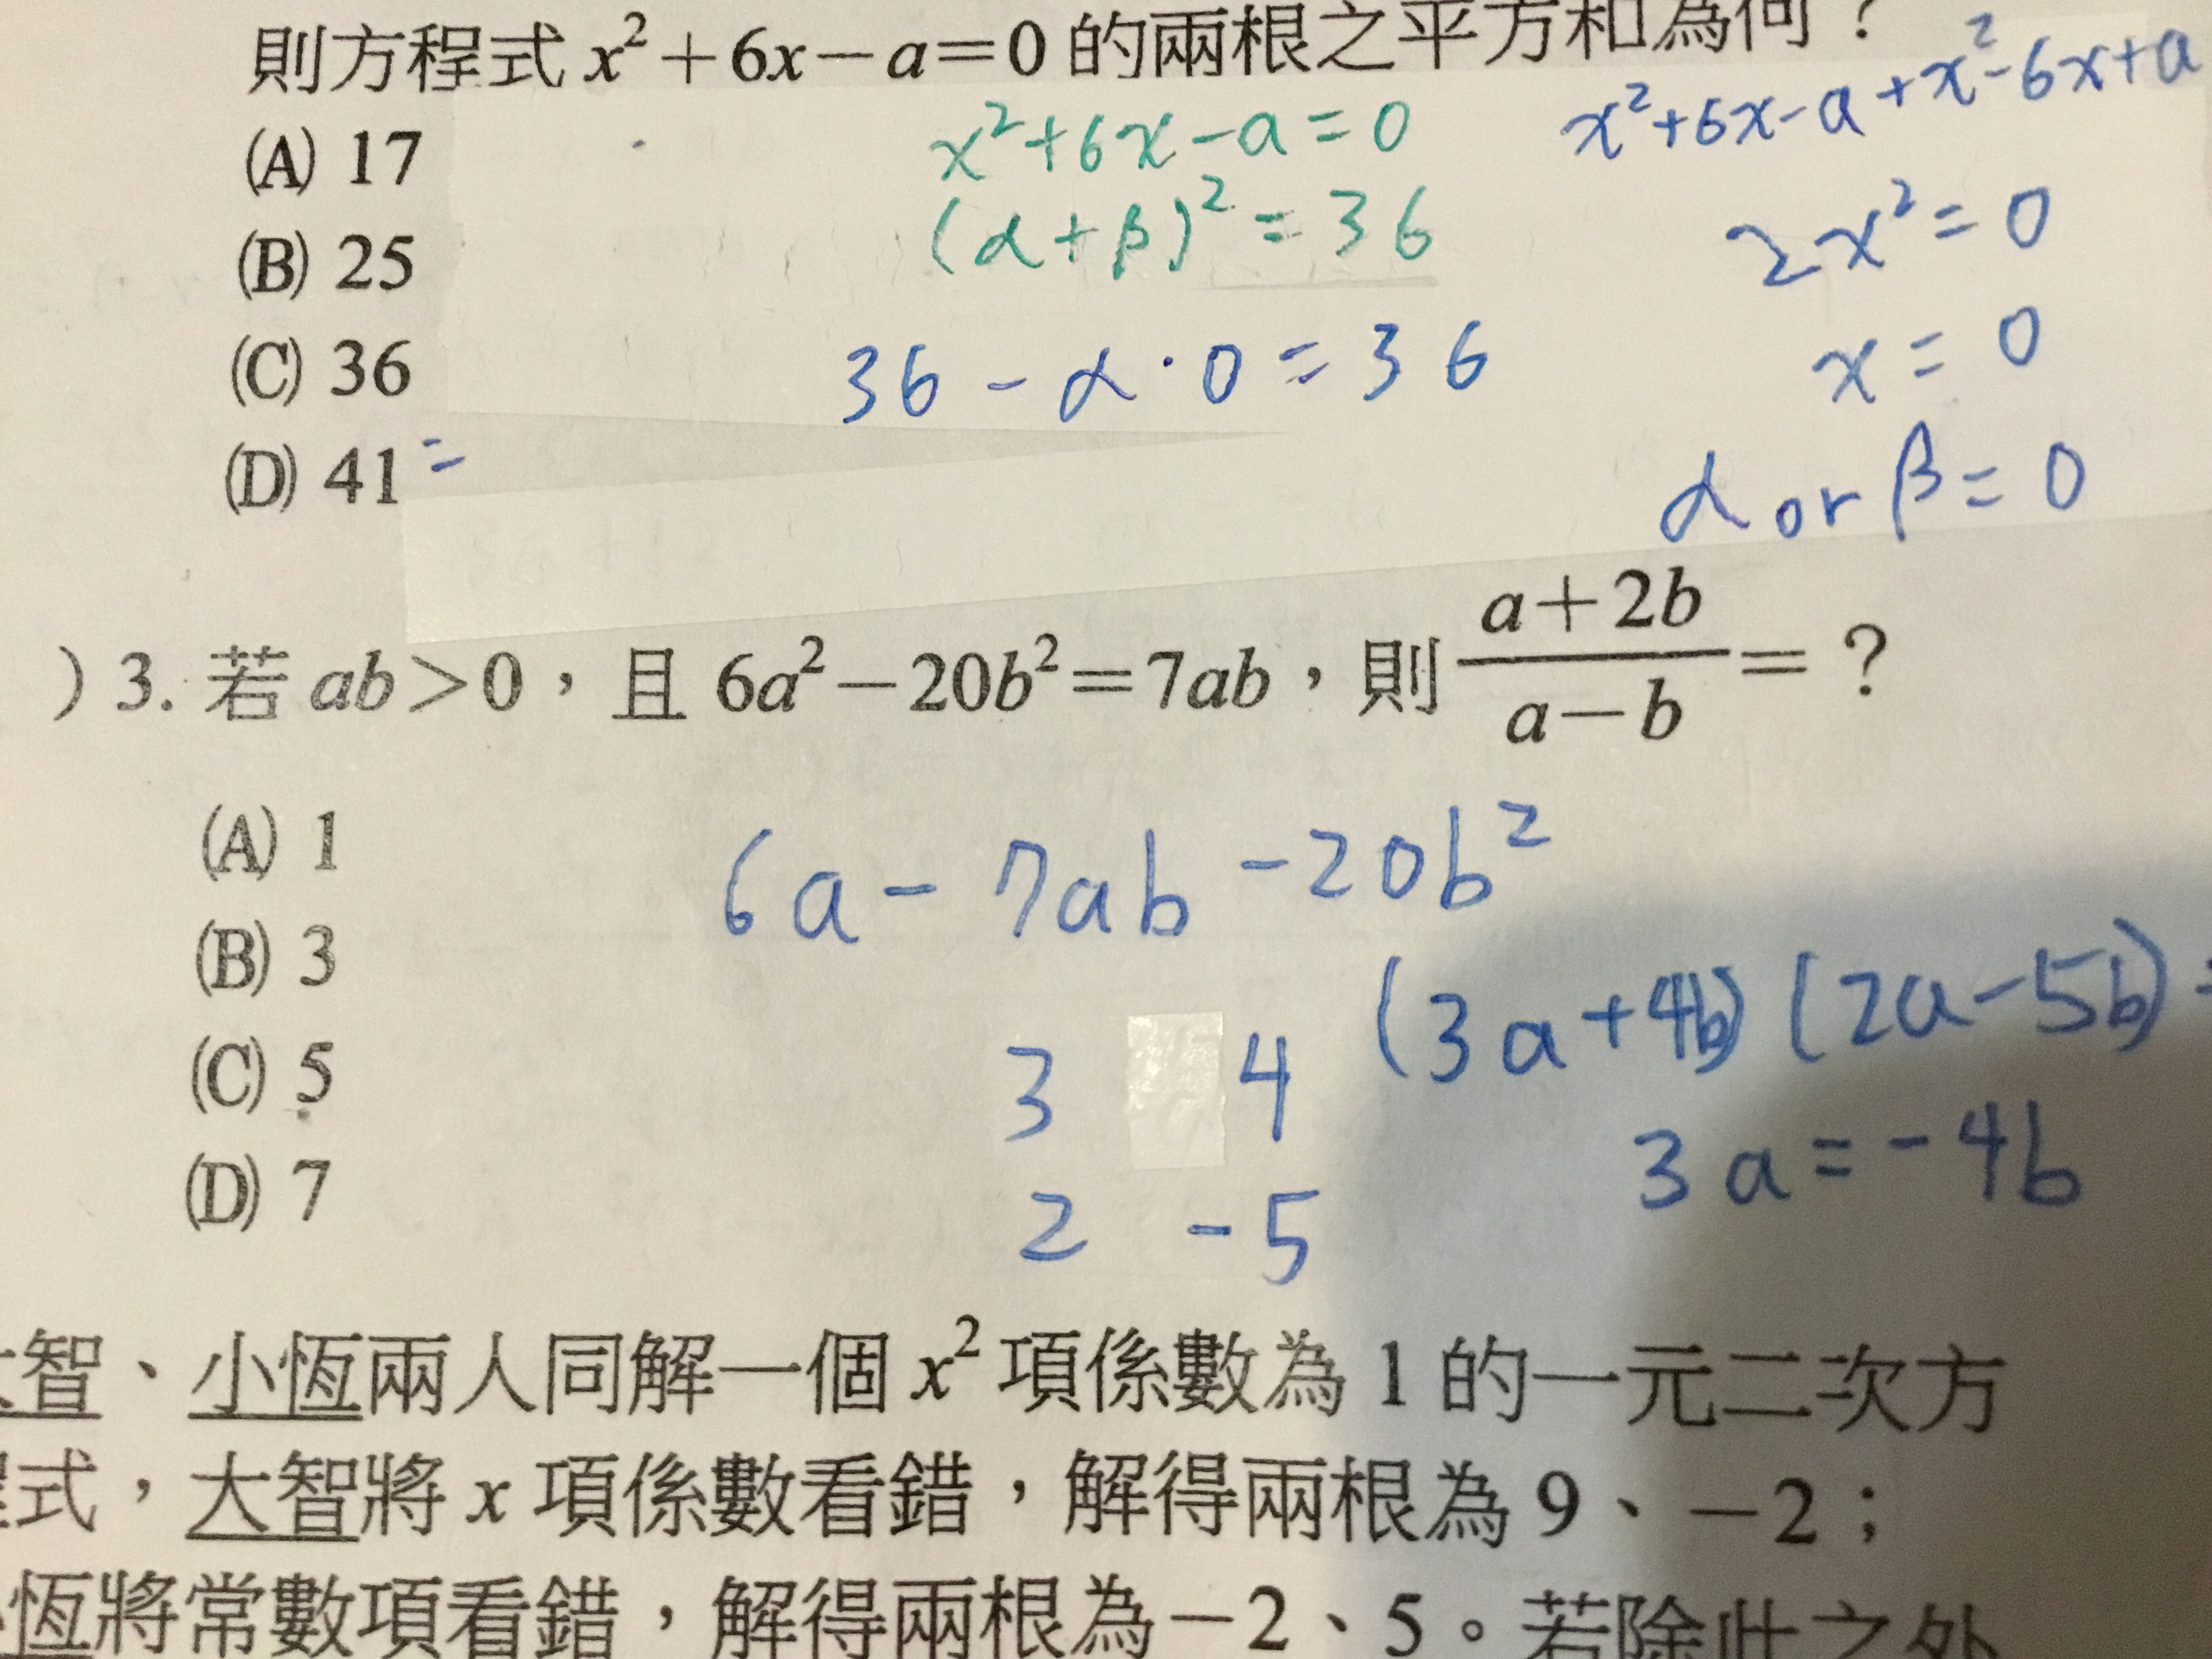 則方程式 x²+6x−a=0 的兩根之平方和為何？
x²+6x-a+x²-6x+a
(A) 17
x²+6x-a=0
(B) 25
(α+β)²=36
2x²=0
(C) 36
36-α·0=36
x=0
(D) 41 =
α or β=0
) 3. 若 ab>0，且 6a²−20b²=7ab，則 (a+2b)/(a−b) = ？
(A) 1
6a-7ab-20b²
(B) 3
(3a+4b)(2a-5b)=
(C) 5
3 4
3a=-4b
(D) 7
2 -5
智、小恆兩人同解一個 x² 項係數為 1 的一元二次方
式，大智將 x 項係數看錯，解得兩根為 9、−2；
恆將常數項看錯，解得兩根為−2、5。若除此之外